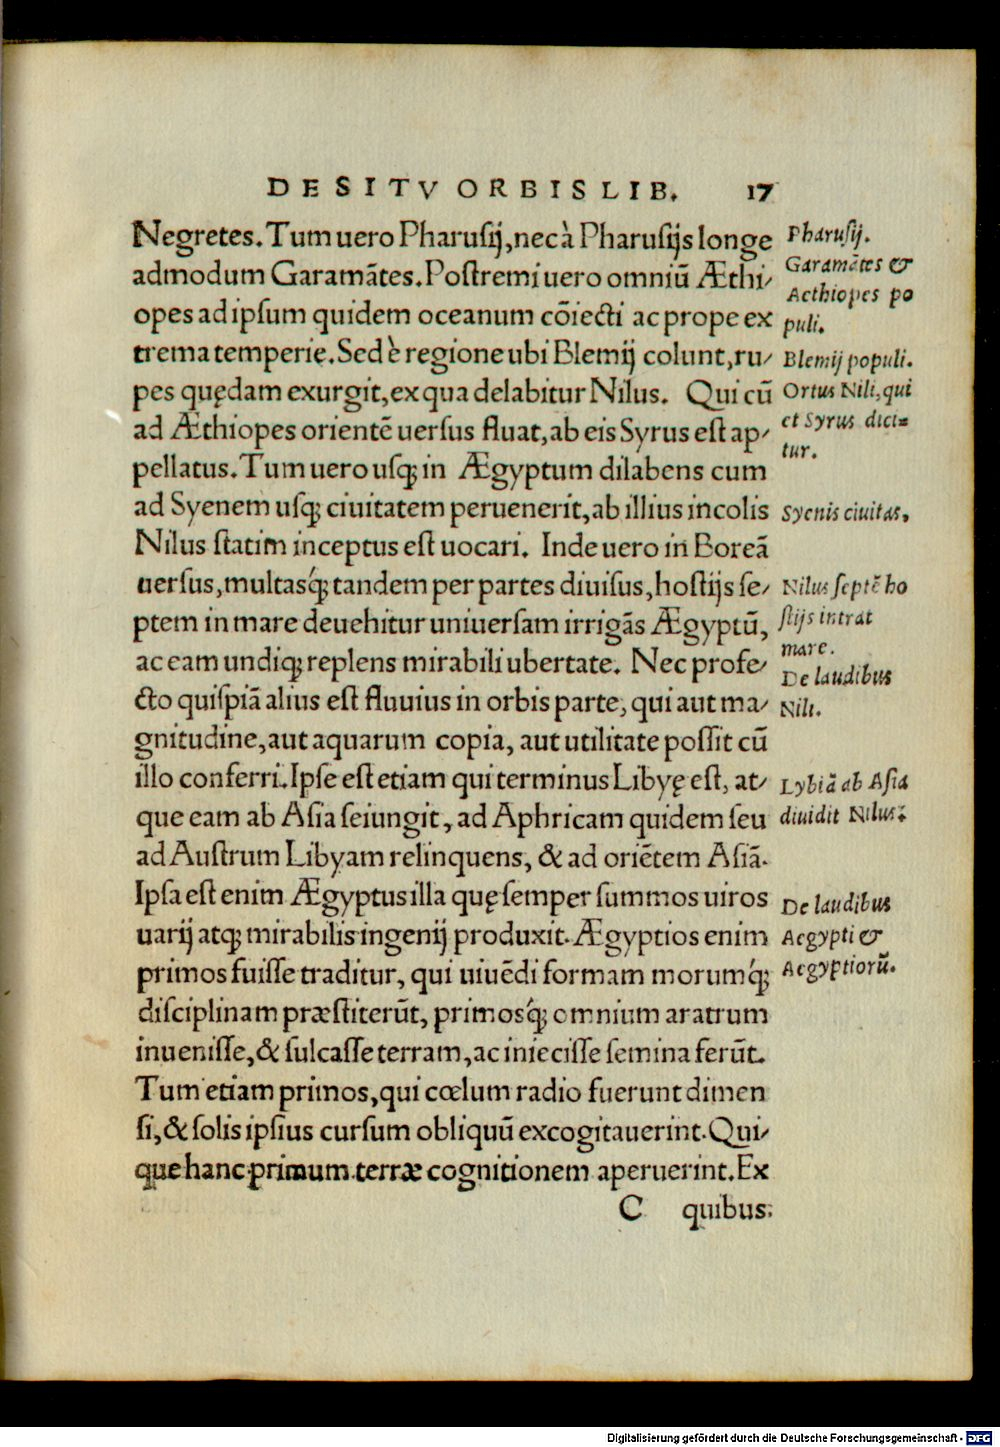 DE SITV ORBIS LIB. 17
Negretes. Tum uero Pharusij, nec à Pharusijs longe
admodum Garamãtes. Postremi uero omniũ Æthi/
opes ad ipsum quidem oceanum cõiecti ac prope ex
trema temperię. Sed è regione ubi Blemij colunt, ru/
pes quędam exurgit, ex qua delabitur Nilus. Qui cũ
ad Æthiopes orientẽ uersus fluat, ab eis Syrus est ap/
pellatus. Tum uero usq; in Ægyptum dilabens cum
ad Syenem usq; ciuitatem peruenerit, ab illius incolis
Nilus statim inceptus est uocari. Inde uero in Boreã
uersus, multasq́; tandem per partes diuisus, hostijs se/
ptem in mare deuehitur uniuersam irrigãs Ægyptũ,
ac eam undiq; replens mirabili ubertate. Nec profe/
cto quispiã alius est fluuius in orbis parte, qui aut ma/
gnitudine, aut aquarum copia, aut utilitate possit cũ
illo conferri. Ipse est etiam qui terminus Libyę est, at/
que eam ab Asia seiungit, ad Aphricam quidem seu
ad Austrum Libyam relinquens, & ad oriẽtem Asiã.
Ipsa est enim Ægyptus illa quę semper summos uiros
uarij atq; mirabilis ingenij produxit. Ægyptios enim
primos fuisse traditur, qui uiuẽdi formam morumq́;
disciplinam præstiterũt, primosq́; omnium aratrum
inuenisse, & sulcasse terram, ac iniecisse semina ferũt.
Tum etiam primos, qui cœlum radio fuerunt dimen
si, & solis ipsius cursum obliquũ excogitauerint. Qui/
que hanc primum terræ cognitionem aperuerint. Ex
C quibus
Pharusij.
Garamãtes &
Aethiopes po
puli.
Blemij populi.
Ortus Nili, qui
et Syrus dici=
tur.
Syenis ciuitas,
Nilus septẽ ho
stijs intrat
mare.
De laudibus
Nili.
Lybiã ab Asia
diuidit Nilus.
De laudibus
Aegypti &
Aegyptiorũ.
Digitalisierung gefördert durch die Deutsche Forschungsgemeinschaft - DFG